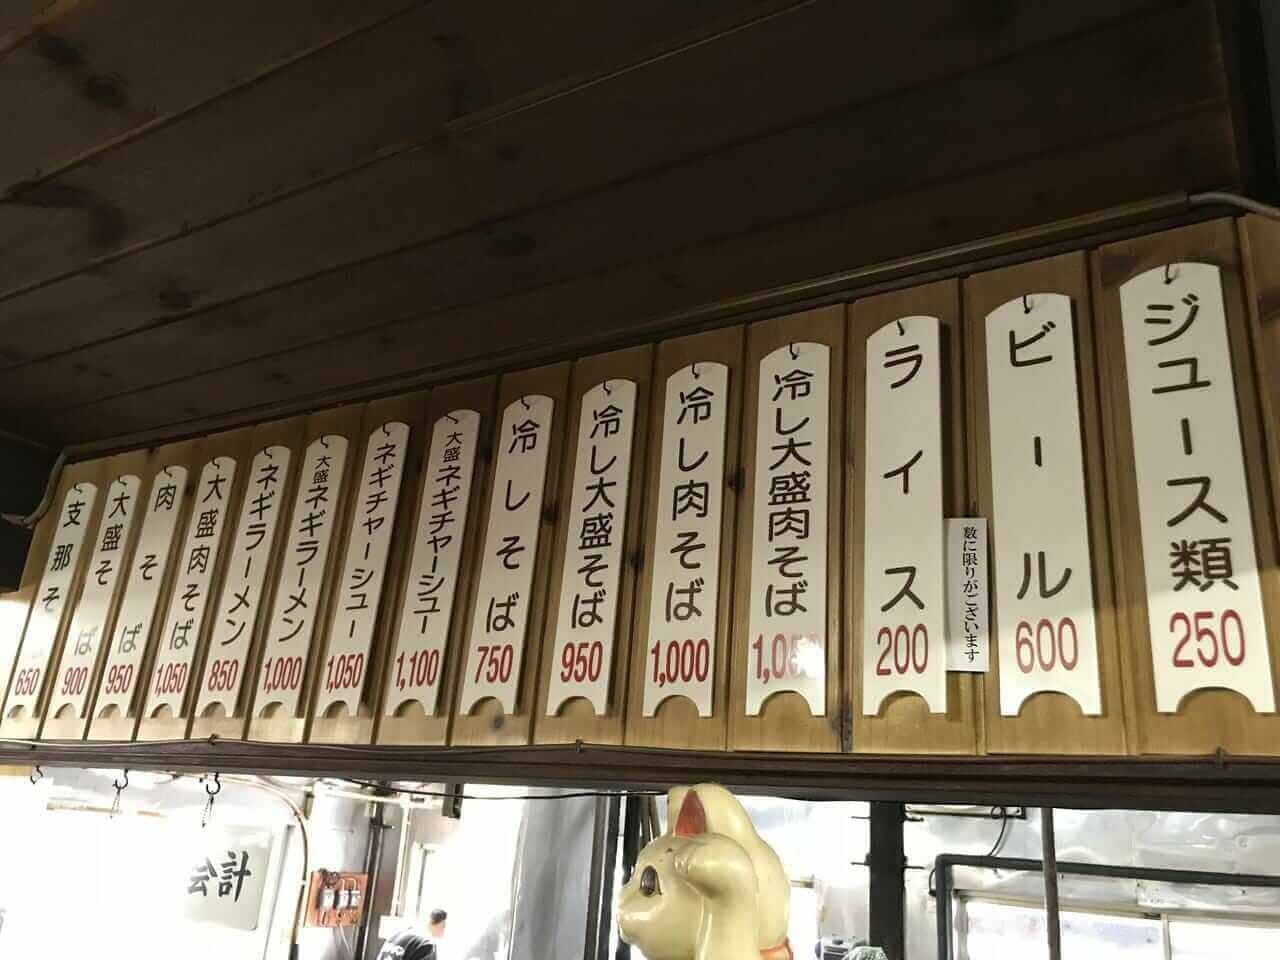 支那そ
650
大盛そば
900
肉そば
950
大盛肉そば
1,050
ネギラーメン
850
大盛ネギラーメン
1,000
ネギチャーシュー
1,050
大盛ネギチャーシュー
1,100
冷しそば
750
冷し大盛そば
950
冷し肉そば
1,000
冷し大盛肉そば
1,050
ライス
200
数に限りがございます
ビール
600
ジュース類
250
会計